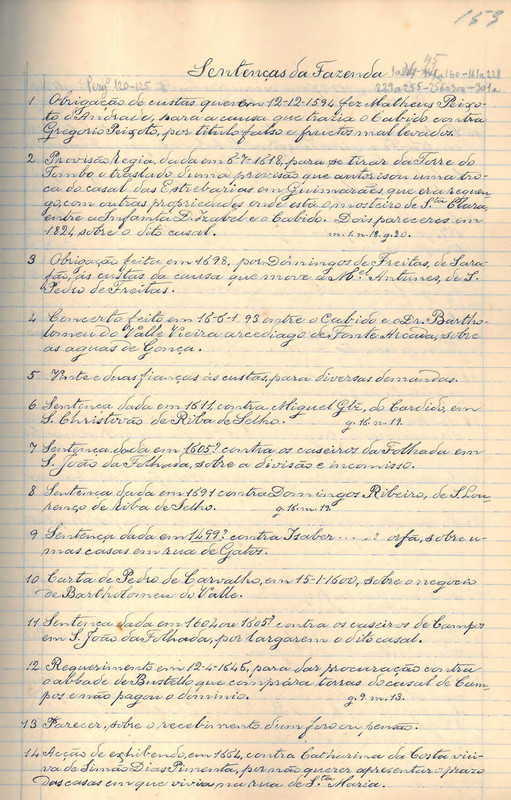 153
Sentenças da Fazenda
160-161a 228
Perg.º 120-125
229a255-256a300-301a
1 Obrigação de custas que em 12-12-1594 fez Matheus Peixo-
to d'Andrade, para a causa que trazia o Cabido contra
Gregorio Peixoto, por titulo falso e fructos mal levados.
2 Provisão Regia, dada em 6-7-1618, para se tirar da Torre do
Tombo o traslado d'uma provisão que autorisou uma tro-
ca do casal das Estrebarias em Guimarães, que era reguen-
go, com outras propriedades onde está o mosteiro de S.ta Clara,
entre a Infanta D. Izabel e o Cabido. Dois pareceres em
1824 sobre o dito casal. m. 1. n. 18. g. 20.
3 Obrigação feita em 1698, por Domingos de Freitas, de Sara-
fão, ás custas da causa que move a M.el Antunes, de S.
Pedro de Freitas.
4 Concerto feito em 16-6-1 93 entre o Cabido e o Dr. Bartho-
lomeu do Valle Vieira arcediago de Fonte Arcada, sobre
as aguas de Gonça.
5 Vinte e duas fianças ás custas, para diversas demandas.
6 Sentença dada em 1611, contra Miguel Glz, do Cardido, em
S. Christovão de Riba de Selho. g. 16. m. 19.
7 Sentença dada em 1605? contra os caseiros da Folhada em
S. João da Folhada, sobre a divisão e incomisso.
8 Sentença dada em 1691 contra Domingos Ribeiro, de S. Lou-
renço de Riba de Selho. g. 16. m. 19.
9 Sentença dada em 1499? contra Isaber ....? orfã, sobre u-
mas casas em rua de Gatos.
10 Carta de Pedro de Carvalho, em 15-1-1600, sobre o negocio
de Bartholomeu do Valle.
11 Sentença dada em 1604 ou 1605? contra os caseiros de Campos
em S. João da Folhada, por largarem o dito casal.
12 Requerimento em 12-4-1645, para dar procuração contra
o abbade de Bustello que comprára terras do casal de Cam-
pos e não pagou o dominio. g. 9. m. 13.
13 Parecer, sobre o recebimento d'um foro ou pensão.
14 Acção de exhibendo, em 1654, contra Catharina da Costa viu-
va de Simão Dias Pimenta, por não querer apresentar o prazo
das casas em que vivia na rua de S.ta Maria.